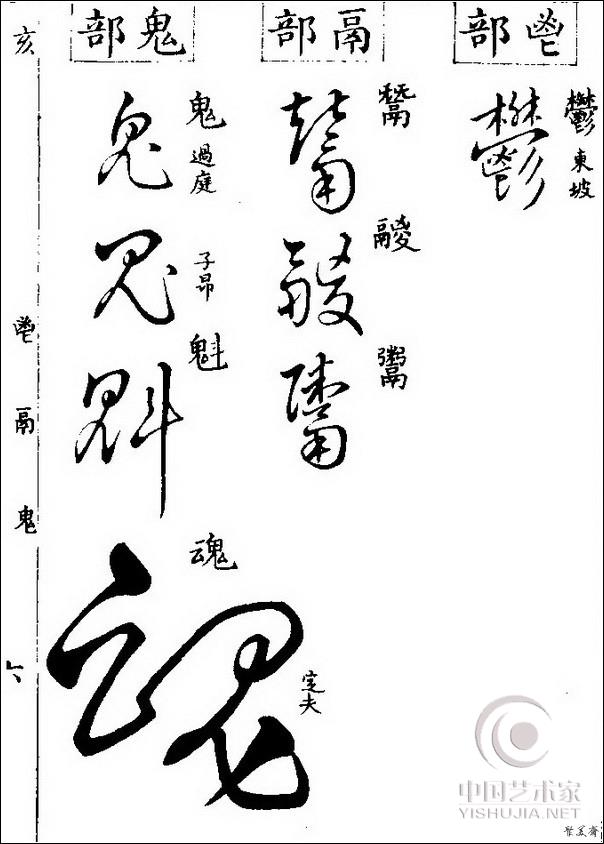 鬯部
鬱 東坡
鬱
鬲部
鬵
鬵
鬷
鬷
鬻
鬻
鬼部
鬼 過庭
鬼
子昂
鬼
魁
魁
魂
魂
定夫
亥
鬯
鬲
鬼
六
中国艺术家
YISHUJIA.NET